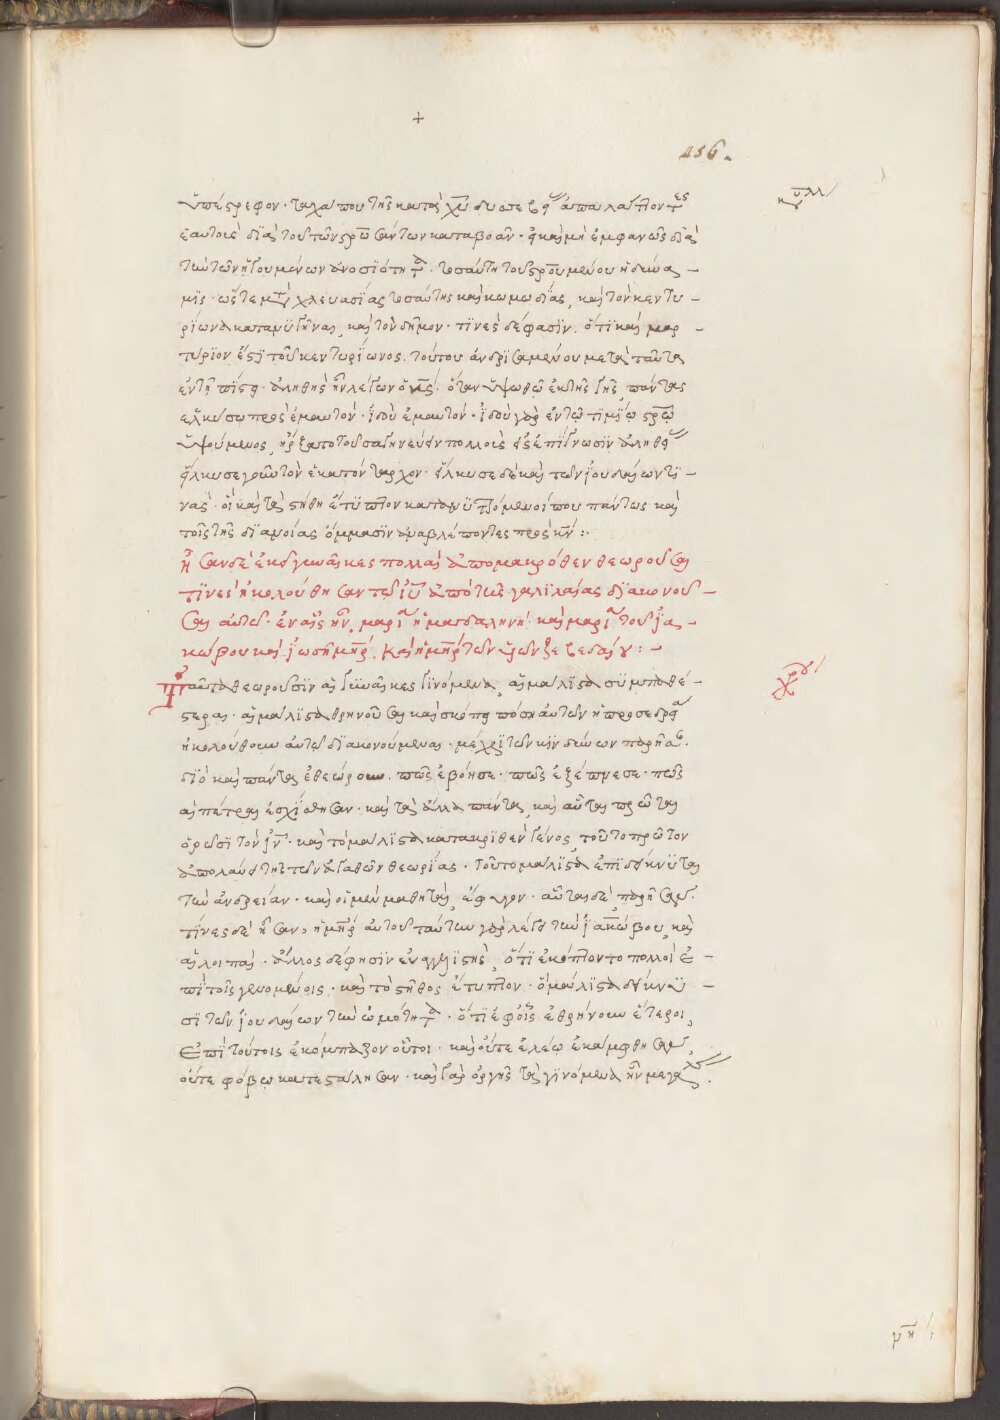 +
456.
κυριλλ
ὑπέστρεφον· τάχα που τῆς κατὰ χυ δυσσεβείας ἀπαλλάττοντες
ἑαυτοὺς διὰ τοῦ τῶν σρω σάντων καταβοᾶν· εἰ καὶ μὴ ἐμφανῶς διὰ
τὴν τῶν ἡγουμένων ἀνοσιότητα. τοσαύτη τοῦ σρουμένου ἡ δύνα-
μις· ὥστε μετὰ χλευασίας τοσαύτης καὶ κωμωδίας, καὶ τὸν κεντυ-
ρίωνα κατανυγῆναι, καὶ τὸν δῆμον· τινὲς δέ φασιν. ὅτι καὶ μαρ-
τύριον ἔστι τοῦ κεντυρίωνος. τούτου ἀνδρισαμένου μετὰ ταῦτα
ἐν τῇ πίστει· ἀληθὴς ἦν λέγων ὁ ις. ὅταν ὑψωθῶ ἐκ τῆς γῆς, πάντας
ἑλκύσω πρὸς ἐμαυτόν· ἰδοὺ ἐμαυτόν· ἰδοὺ γὰρ ἐν τῷ τιμίῳ σρω
ὑψούμενος, ἤρξατο τοῦ σαγηνεύειν πολλοὺς εἰς ἐπίγνωσιν ἀληθείας
εἵλκυσε γοῦν τὸν ἑκατόνταρχον· εἵλκυσε δὲ καὶ τῶν ἰουδαίων τι-
νάς· οἳ καὶ τὰ στήθη ἔτυπτον κατανυττόμενοί που πάντως καὶ
τοῖς τῆς διανοίας ὄμμασιν ἀναβλέποντες πρὸς κν:·
ἦσαν δὲ ἐκεῖ γυναῖκες πολλαὶ ἀπὸ μακρόθεν θεωροῦσαι
τινὲς ἠκολούθησαν τῷ ιυ ἀπὸ τῆς γαλιλαίας διακονοῦ-
σαι αὐτῷ· ἐν αἷς ἦν, μαρία ἡ μαγδαληνὴ· καὶ μαρία τοῦ ἰα-
κώβου καὶ ἰωσῆ μηρ. καὶ ἡ μηρ τῶν υἱῶν ζεβεδαίου:·-
χρυ
Ταῦτα θεωροῦσιν αἱ γυναῖκες γινόμενα, αἱ μάλιστα συμπαθέ-
στεραι· αἱ μάλιστα θρηνοῦσαι καὶ σκόπει πόση αὐτῶν ἡ προσεδρεία
ἠκολούθουν αὐτῷ διακονούμεναι· μέχρι τῶν κινδύνων παρῆσαν.
διὸ καὶ πάντα ἐθεώρουν. πῶς ἐβόησε· πῶς ἐξέπνευσε· πῶς
αἱ πέτραι ἐσχίσθησαν· καὶ τὰ ἄλλα πάντα, καὶ αὗται πρῶται
ὁρῶσι τὸν ιν· καὶ τὸ μάλιστα κατακριθὲν γένος, τοῦτο πρῶτον
ἀπολαύει τῆς τῶν ἀγαθῶν θεωρίας· τοῦτο μάλιστα ἐπιδείκνυται
τὴν ἀνδρείαν· καὶ οἱ μὲν μαθηταὶ, ἔφυγον· αὗται δὲ παρῆσαν.
τίνες δὲ ἦσαν; ἡ μηρ αὐτοῦ ταύτην γὰρ λέγει τὴν ἰακώβου, καὶ
αἱ λοιπαί· ἄλλος δέ φησιν εὐαγγελιστὴς, ὅτι ἐκόπτοντο πολλοὶ ἐ-
πὶ τοῖς γενομένοις· καὶ τὸ στῆθος ἔτυπτον· ὃ μάλιστα δείκνυ-
σι τῶν ἰουδαίων τὴν ὠμότητα· ὅτι ἐφ' οἷς ἐθρήνουν ἕτεροι,
ἐπὶ τούτοις ἐκόμπαζον οὗτοι· καὶ οὔτε ἐλέῳ ἐκάμφθησαν,
οὔτε φόβῳ κατεστάλησαν· καὶ γὰρ ὀργῆς τὰ γινόμενα ἦν μεγάλης.
μη